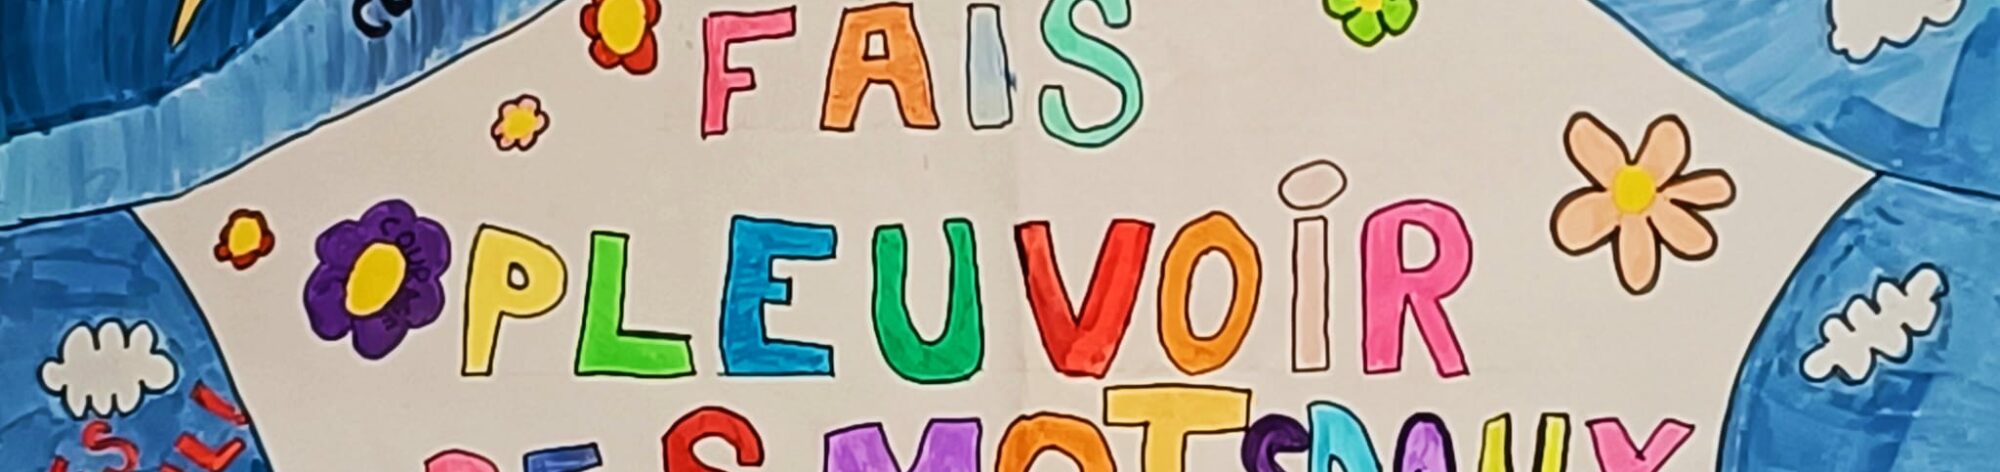 FAIS
PLEUVOIR
DES MOTS DOUX
COURAGE